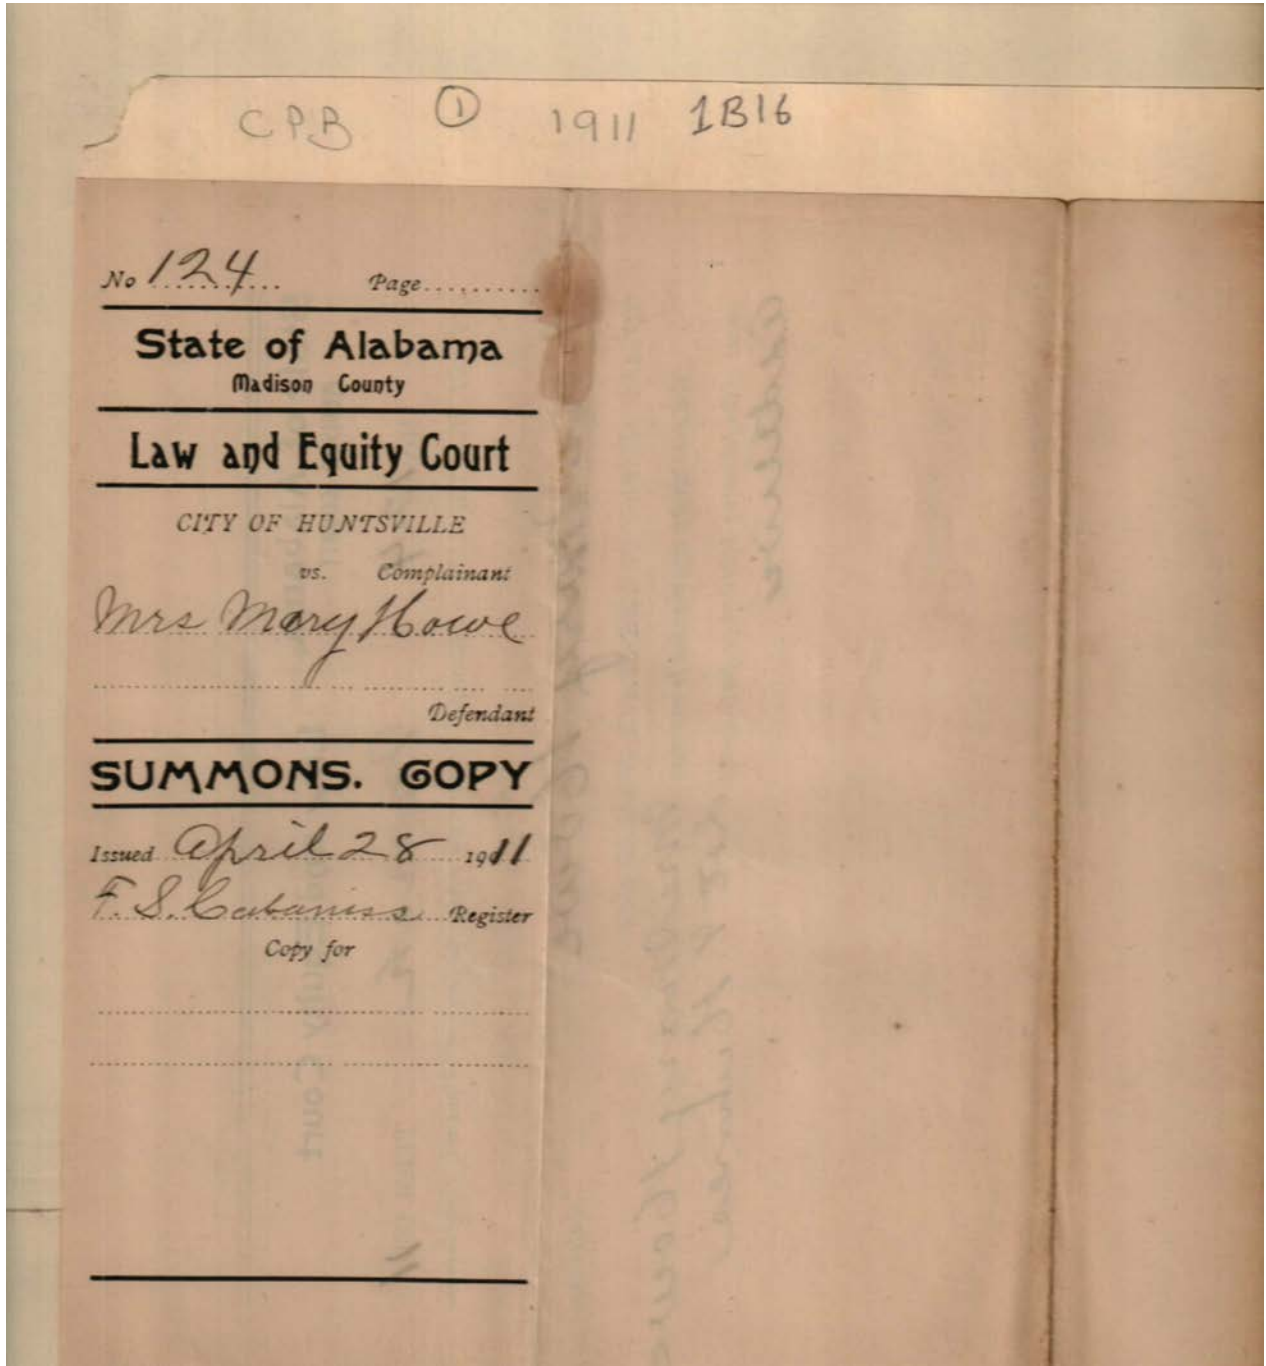 CPB ① 1911 1B16
No 124 Page
State of Alabama
Madison County
Law and Equity Court
CITY OF HUNTSVILLE
vs. Complainant
Mrs Mary Howe
Defendant
SUMMONS. COPY
Issued April 28 1911
F. S. Cabaniss Register
Copy for